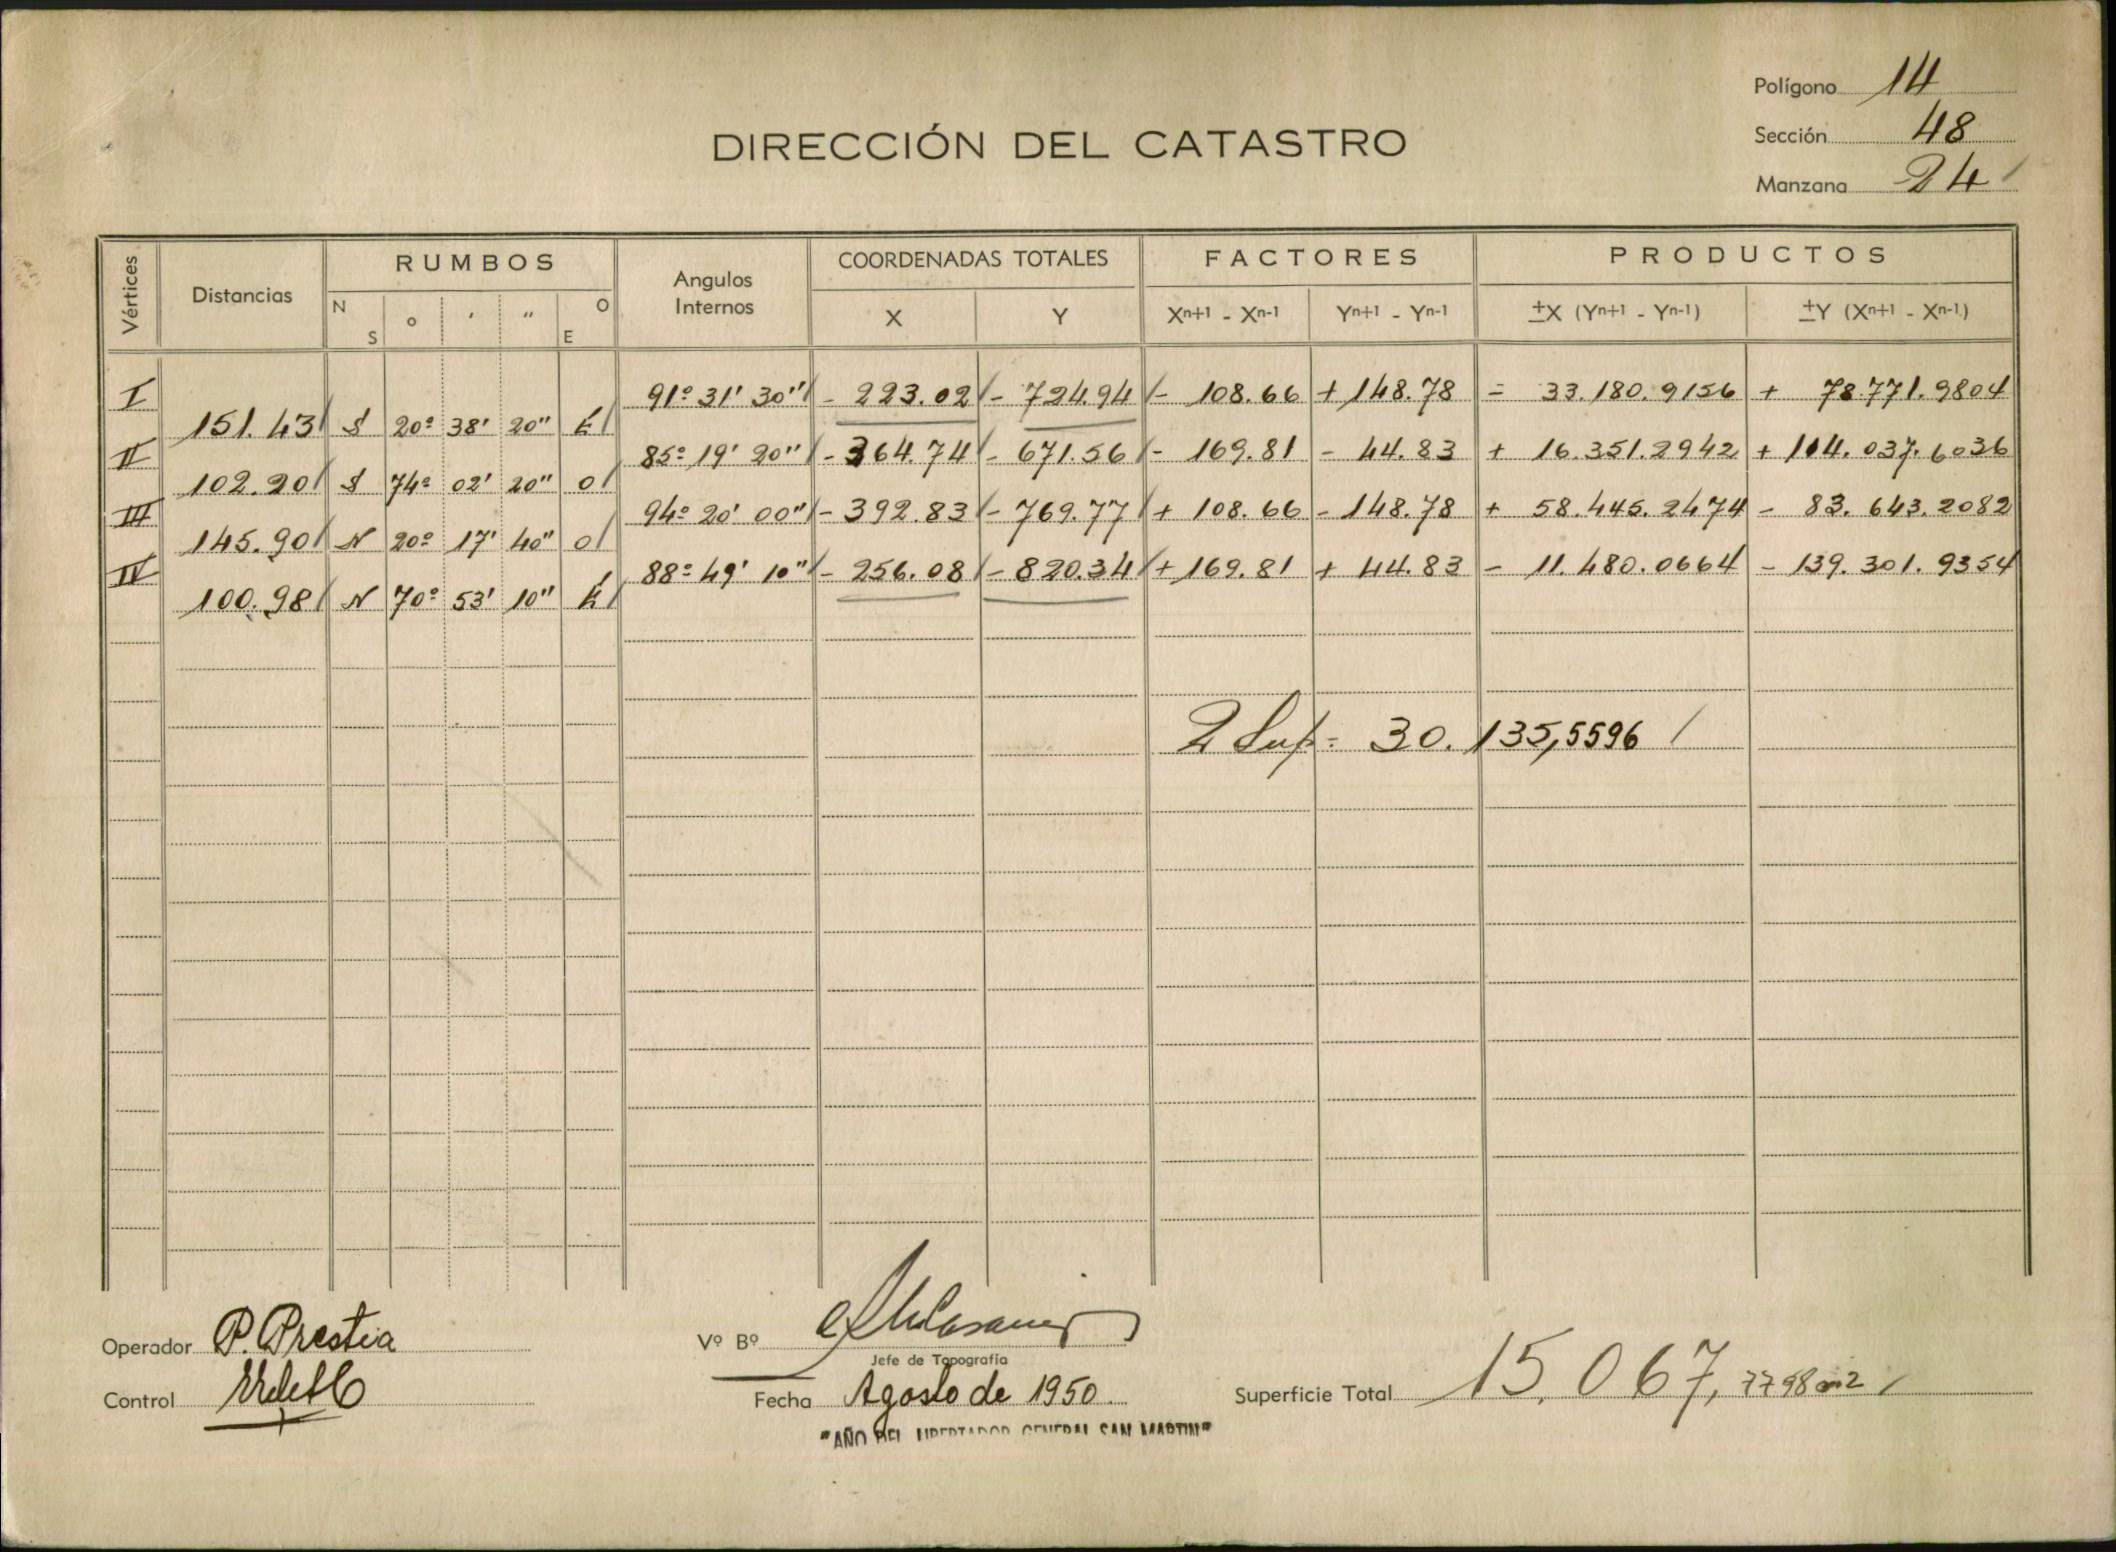 Polígono 14
DIRECCIÓN DEL CATASTRO
Sección 48
Manzana 24
Vértices Distancias RUMBOS Angulos Internos COORDENADAS TOTALES FACTORES PRODUCTOS
N S o ' " O E X Y Xn+1 - Xn-1 Yn+1 - Yn-1 ±X (Yn+1 - Yn-1) ±Y (Xn+1 - Xn-1)
I 91º 31' 30" - 223.02 - 724.94 - 108.66 + 148.78 - 33.180.9156 + 78.771.9804
151.43 S 20º 38' 20" E
II 85º 19' 20" - 364.74 - 671.56 - 169.81 - 44.83 + 16.351.2942 + 114.037.6036
102.20 S 74º 02' 20" O
III 94º 20' 00" - 392.83 - 769.77 + 108.66 - 148.78 + 58.445.2474 - 83.643.2082
145.90 N 20º 17' 40" O
IV 88º 49' 10" - 256.08 - 820.34 + 169.81 + 44.83 - 11.480.0664 - 139.301.9354
100.98 N 70º 53' 10" E
2 Sup = 30.135,5596
Operador P. Prestia
Vº Bº
Jefe de Topografía
Control
Fecha Agosto de 1950.
Superficie Total 15.067,7798 m2
"AÑO DEL LIBERTADOR GENERAL SAN MARTIN"